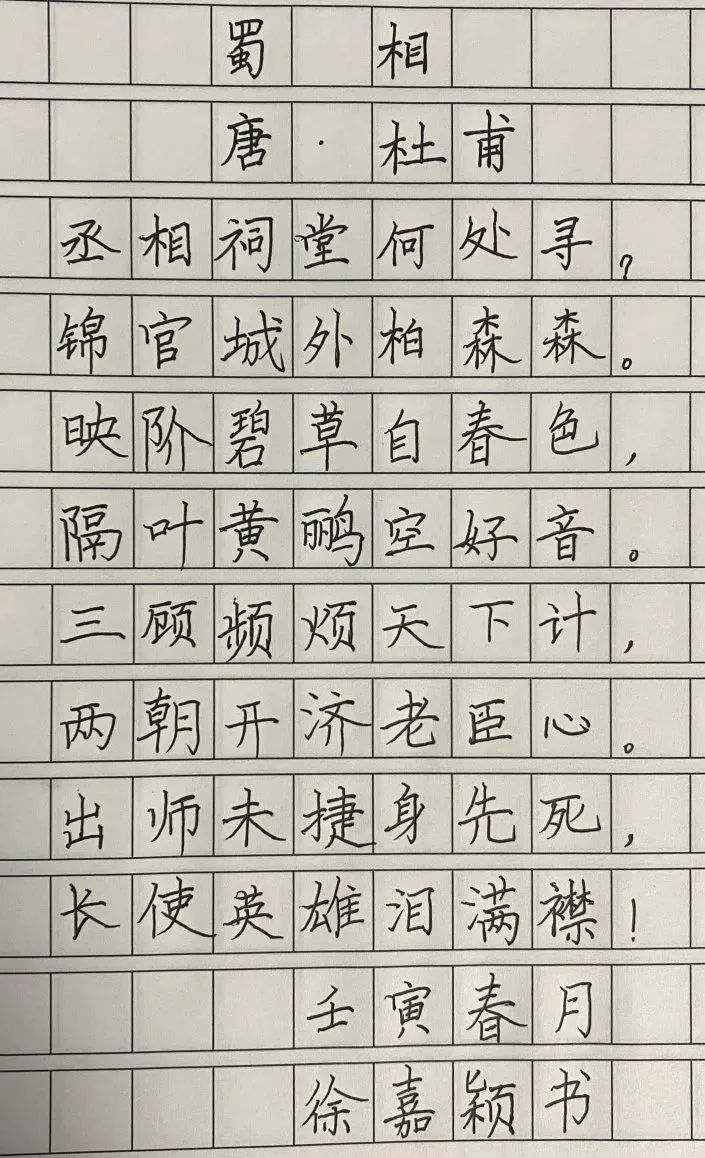 蜀相
唐·杜甫
丞相祠堂何处寻？
锦官城外柏森森。
映阶碧草自春色，
隔叶黄鹂空好音。
三顾频烦天下计，
两朝开济老臣心。
出师未捷身先死，
长使英雄泪满襟！
壬寅春月
徐嘉颖书